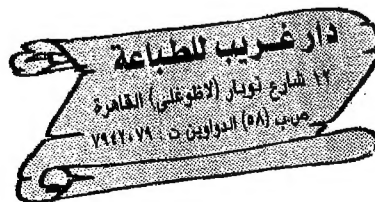 دار غريب للطباعة
١٢ شارع نوبار (لاظوغلى) القاهرة
ص.ب (٥٨) الدواوين ت : ٧٩٤٢٠٧٩